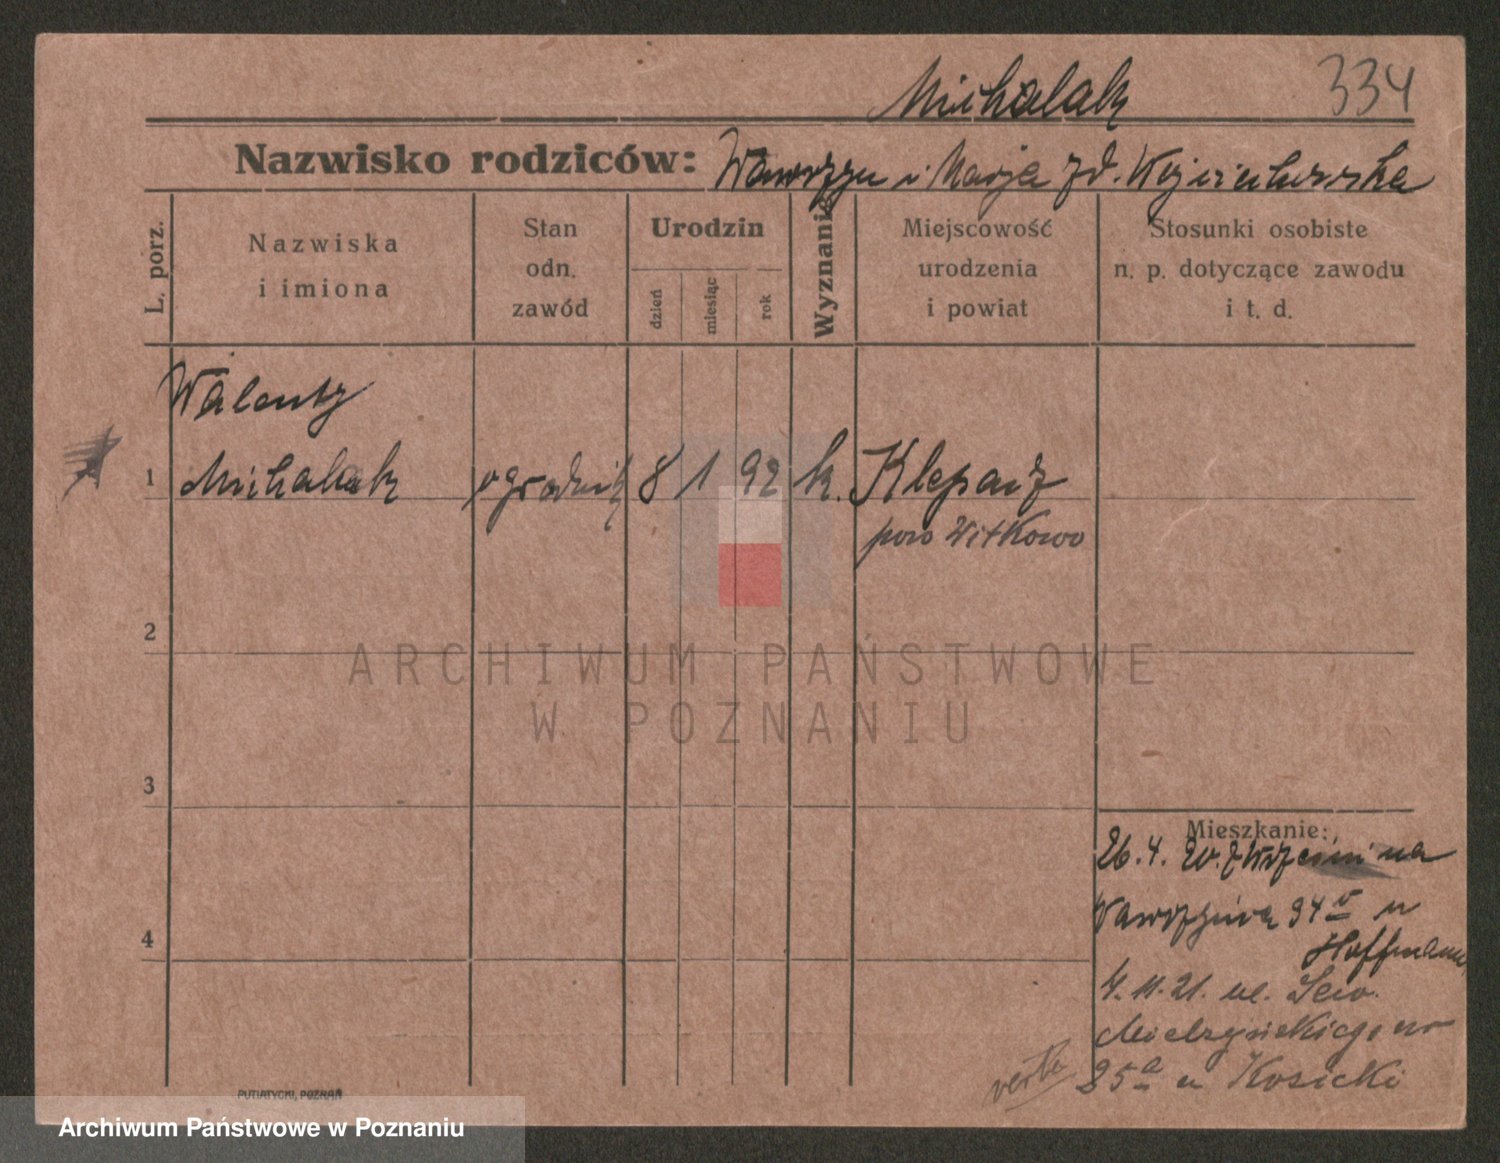 Michalak 334
Nazwisko rodziców: Wawrzyn i Marja zd.
L. porz.
Nazwiska
i imiona
Stan
odn.
zawód
Urodzin
dzień
miesiąc
rok
Wyznanie
Miejscowość
urodzenia
i powiat
Stosunki osobiste
n. p. dotyczące zawodu
i t. d.
Walenty
1 Michalak ogrodnik 8 1 92 k. Klepacz
pow Witkowo
2
3
4
ARCHIWUM PAŃSTWOWE
W POZNANIU
Mieszkanie:
26.4. 20. z Wrześni na
Wawrzyńca 34 u
Hoffmann
4.11.21. ul. Sew.
Mielżyńskiego nr
25a u Kosicki
verte
PUTIATYCKI, POZNAŃ
Archiwum Państwowe w Poznaniu